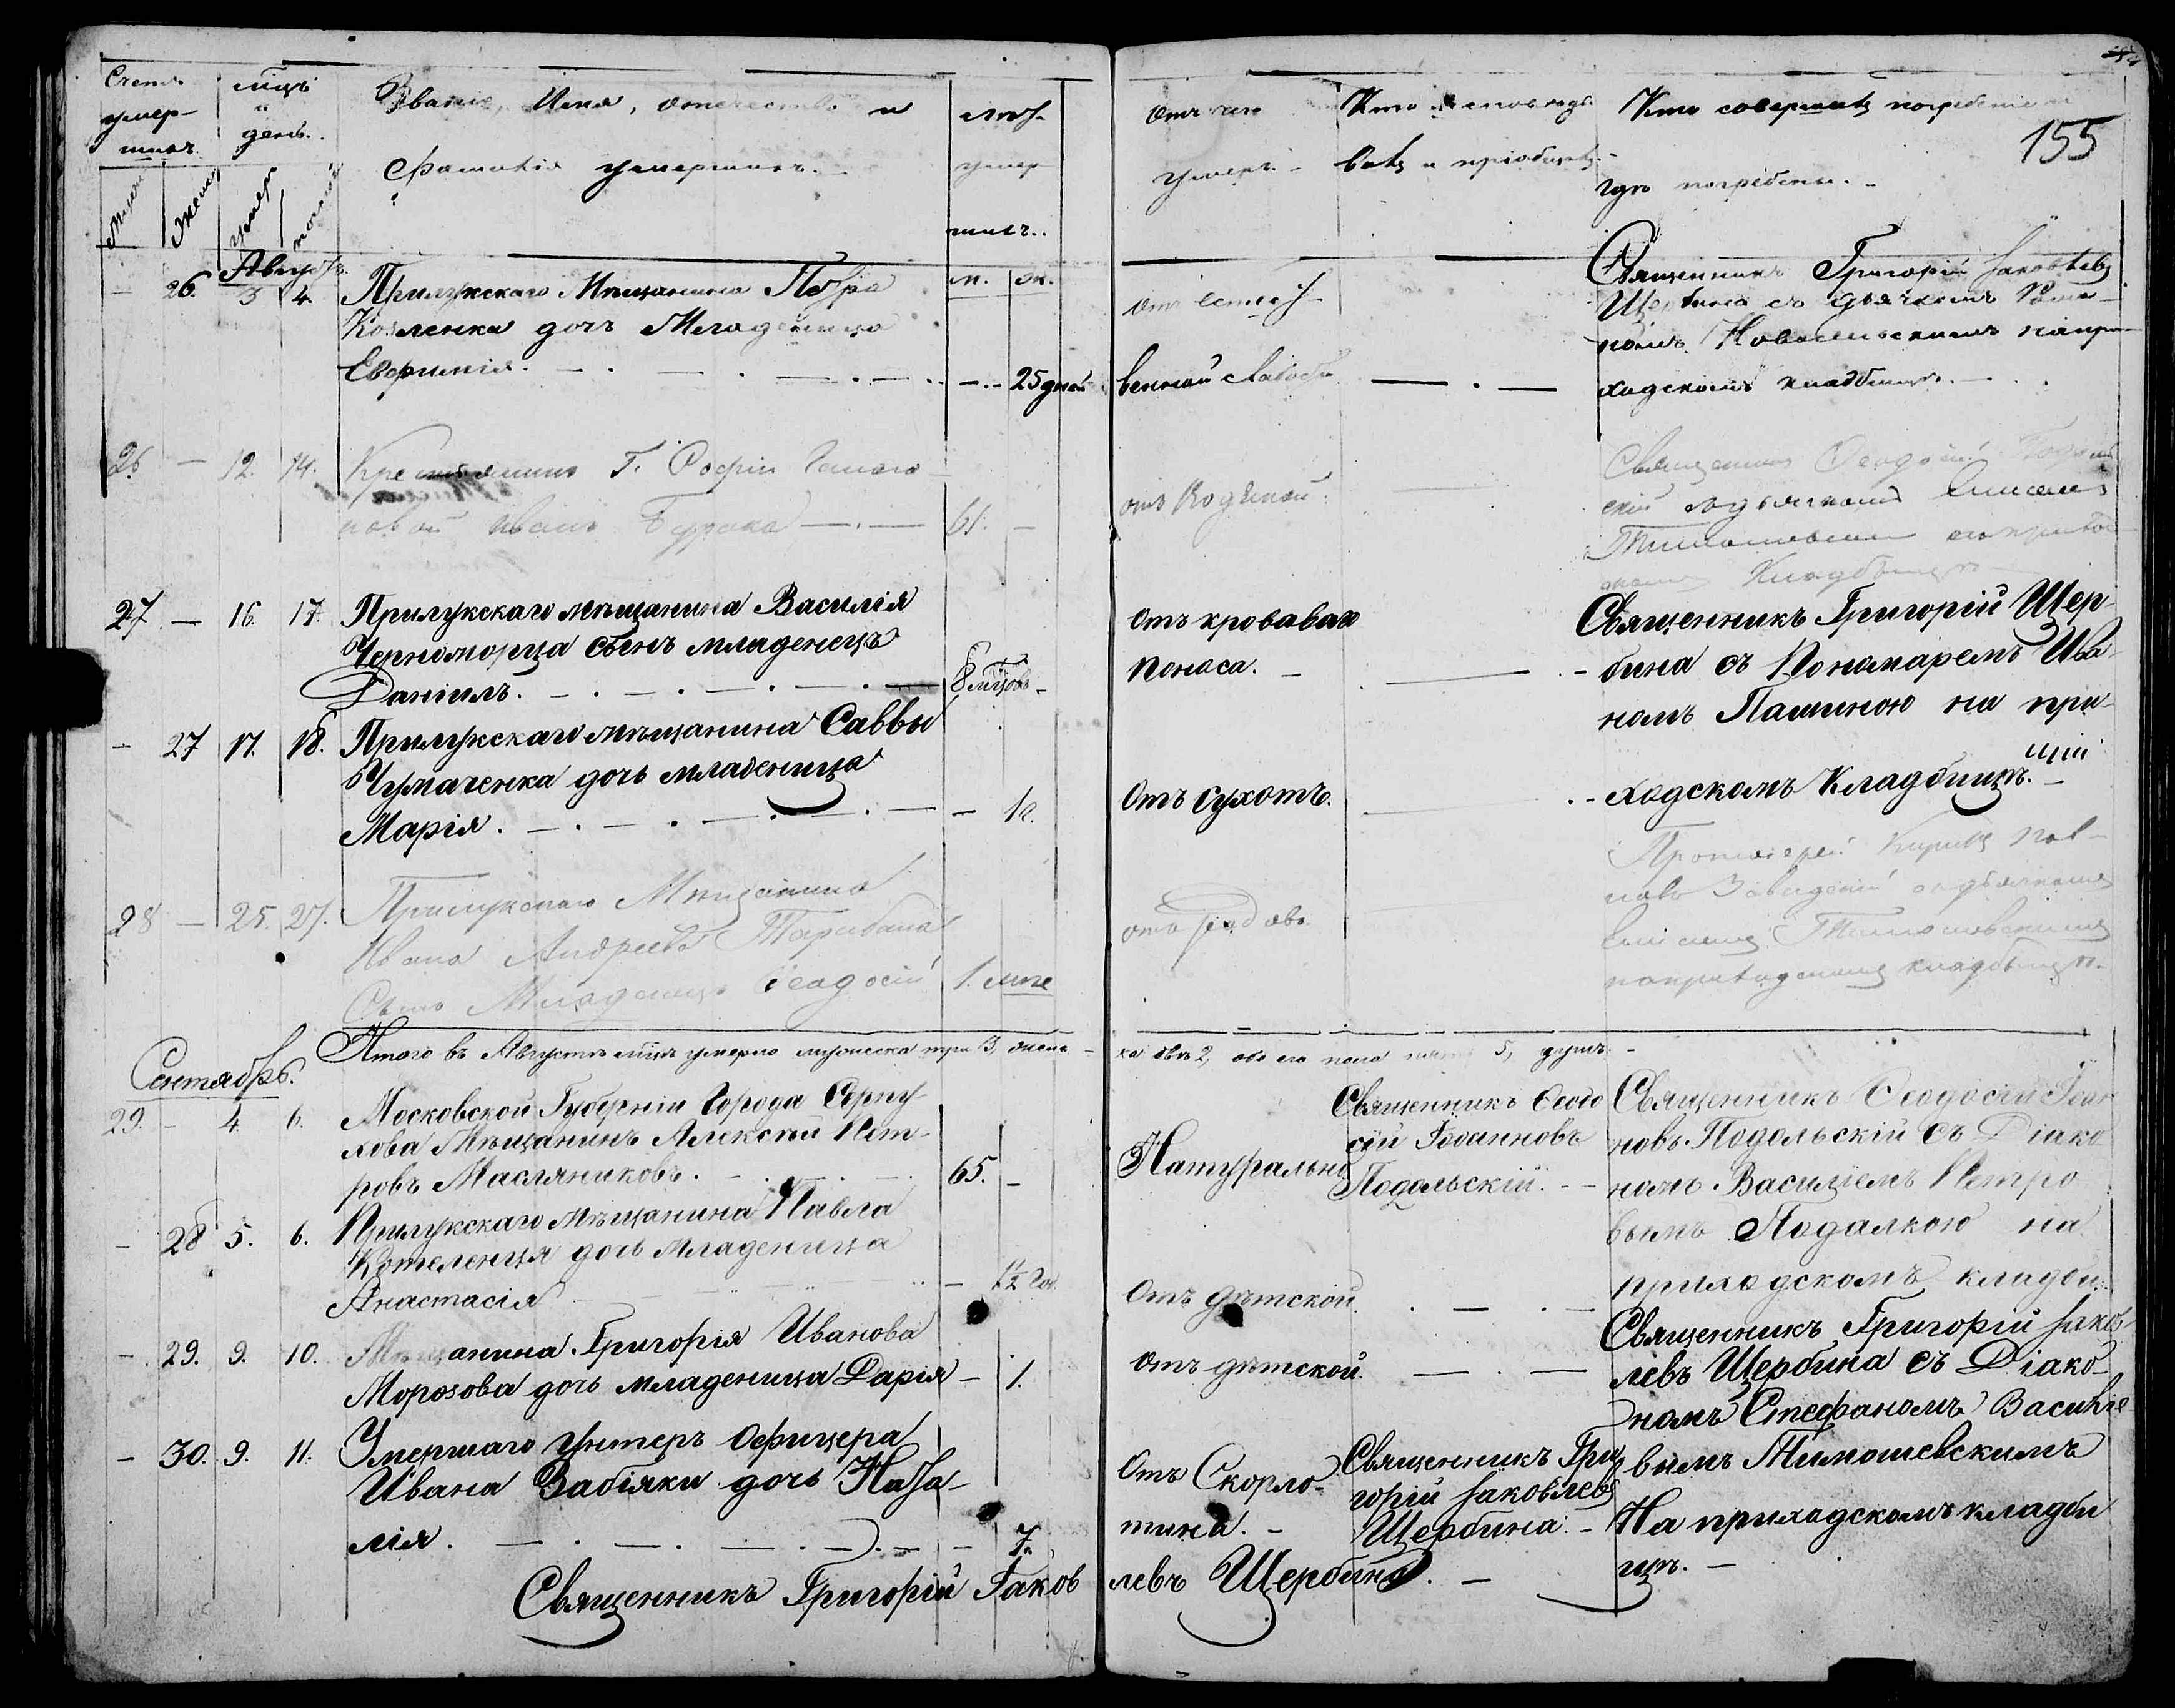 155
Счетъ умер-
шихъ.
мцъ
и
день.
Званіе, Имя, отечество и
Фамилія умершихъ.
умер
шихъ.
Отъ чего
умеръ.
Кто исповѣды
валъ и пріобщалъ.
Кто совершалъ погребеніе и
гдѣ погребены.
Августъ.
м. ж.
— 26. 3 4. Прилукскаго Мѣщанина Петра
Козленка дочъ Младеница
Евфимія. — 25 дней
венной слабости
Священникъ Григорій Іаковлевъ
Щербина съ дьячкомъ
Новосельскимъ на при-
ходскомъ кладбищѣ.
26 — 12. 14. Крестьянинъ Г. Софіи
Иванъ Бурака — 61. —
отъ водяной
Священникъ Ѳеодосій Подоль
скій
Тимошевскимъ
Кладбищѣ
27 — 16. 17. Прилукскаго мѣщанина Василія
Черноморца сынъ младенецъ
Даніилъ. — 8 мцовъ —
Отъ кроваваго
поноса. —
Священникъ Григорій Щер-
бина съ Пономаремъ Ива-
номъ Пашиною на при-
ходскомъ Кладбищѣ.
щи
— 27 17. 18. Прилукскаго мѣщанина Саввы
Чумаченка дочь младеница
Марія. — 1 г.
Отъ сухотъ.
28 — 25. 27. Прилукскаго Мѣщанина
Ивана Андреева Тарабана
Сынъ Младенецъ Ѳеодосій 1.
Протоіерей Кирилъ Пав-
ловъ Завадскій
Тимошевскимъ
на приходскомъ кладбищѣ.
Итого въ Августѣ мцѣ умерло мужеска три 3, женс-
ка двѣ 2, обоего пола пять 5, душъ.
Сентябрь.
29. — 4. 6. Московской Губерніи Города Серпу-
хова Мѣщанинъ Алексѣй Пет-
ровъ Масляниковъ. — 65. —
Натурально
Священникъ Ѳеодо
сій Іоанновъ
Подольскій. —
Священникъ Ѳеодосій Іоан
новъ Подольскій съ Діако
номъ Василіемъ Петро
вымъ Подалкою на
приходскомъ кладби.
— 28 5. 6. Прилукскаго мѣщанина Павла
Котеленця дочь младеница
Анастасія — 1/2 год.
Отъ дѣтской.
— 29. 9. 10. Мѣщанина Григорія Иванова
Морозова дочь младеница Дарія — 1.
Отъ дѣтской.
Священникъ Григорій Іаков-
левъ Щербина съ Діако-
номъ Стефаномъ Василіе
вымъ Тимошевскимъ
На приходскомъ кладби
щѣ. —
— 30. 9. 11. Умершаго унтеръ Офицера
Ивана Забіяки дочь Ната-
лія. — 7.
Отъ Скорло-
тина. —
Священникъ Гри
горій Іаковлевъ
Щербина. —
Священникъ Григорій Іаков
левъ Щербина. —